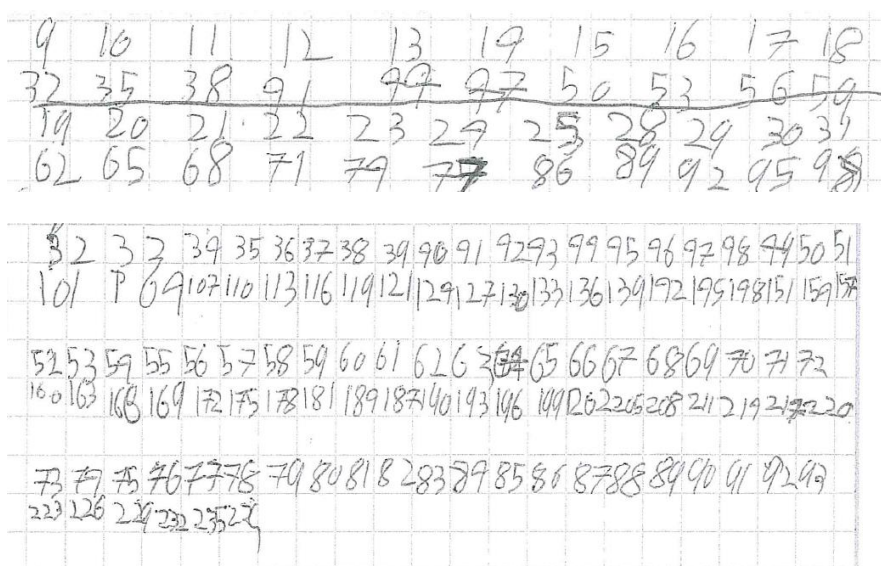 9 10 11 12 13 14 15 16 17 18
32 35 38 41 44 47 50 53 56 59
19 20 21 22 23 24 25 28 29 30 31
62 65 68 71 74 77 86 89 92 95 98
32 33 34 35 36 37 38 39 40 41 42 43 44 45 46 47 48 49 50 51
101 P 04 107 110 113 116 119 121 124 127 130 133 136 139 142 145 148 151 154 157
52 53 54 55 56 57 58 59 60 61 62 63 64 65 66 67 68 69 70 71 72
160 163 166 169 172 175 178 181 184 187 190 193 196 199 202 205 208 211 214 217 220
73 74 75 76 77 78 79 80 81 82 83 84 85 86 87 88 89 90 91 92 93
223 226 229 232 235